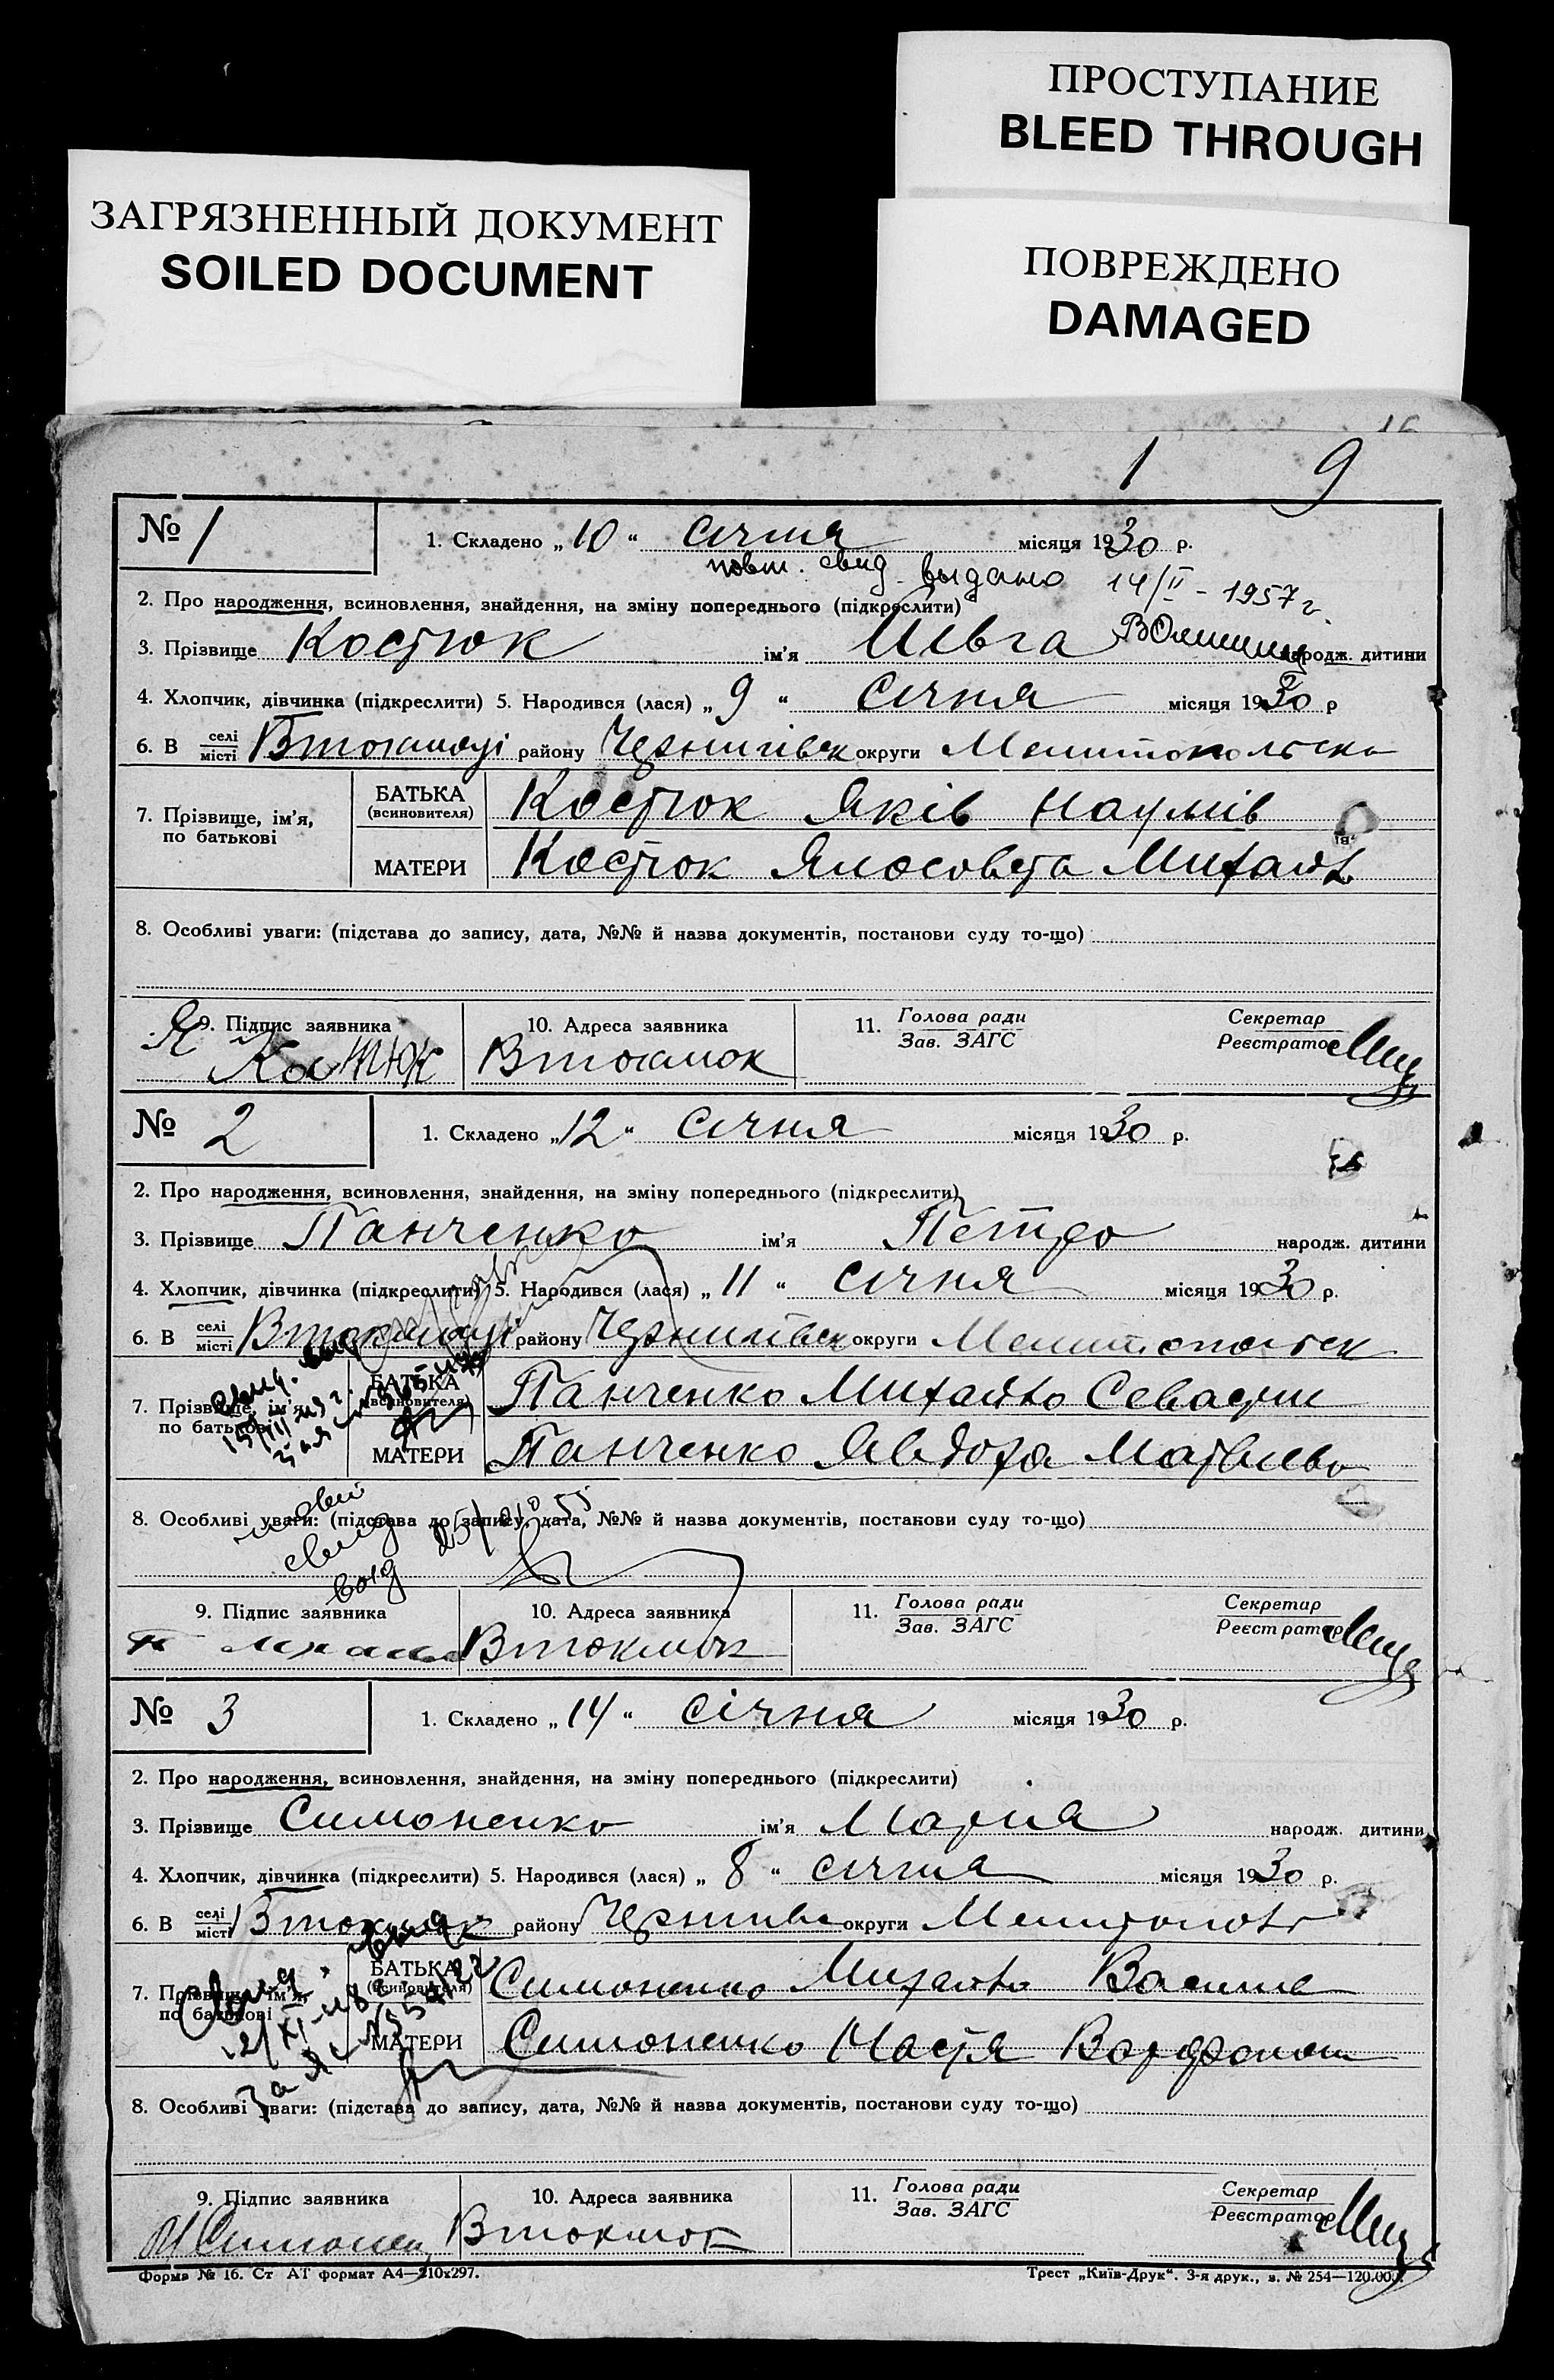 ПРОСТУПАНИЕ
BLEED THROUGH
ЗАГРЯЗНЕННЫЙ ДОКУМЕНТ
SOILED DOCUMENT
ПОВРЕЖДЕНО
DAMAGED
16
1 9
№ 1
1. Складено „10“ січня місяця 1930 р.
повт. свид. выдано 14/II - 1957 г.
2. Про народження, всиновлення, знайдення, на зміну попереднього (підкреслити)
3. Прізвище Костюк ім'я Ильга народж. дитини
4. Хлопчик, дівчинка (підкреслити) 5. Народився (лася) „9“ січня місяця 1930 р
6. В селі місті Втокмаці району Чернигівск округи Мелитопольско
7. Прізвище, ім'я, по батькові
БАТЬКА (всиновителя) Костюк Яків Наумів
МАТЕРИ Костюк Ялосовета Михайл
8. Особливі уваги: (підстава до запису, дата, №№ й назва документів, постанови суду то-що)
9. Підпис заявника 10. Адреса заявника 11. Голова ради Зав. ЗАГС Секретар Реєстратор
Я Костюк Втокмок
№ 2
1. Складено „12“ січня місяця 1930 р.
2. Про народження, всиновлення, знайдення, на зміну попереднього (підкреслити)
3. Прізвище Панченко ім'я Петро народж. дитини
4. Хлопчик, дівчинка (підкреслити) 5. Народився (лася) „11“ січня місяця 1930 р.
6. В селі місті Втокмаці району Чернигівск округи Мелитопольск
7. Прізвище, ім'я, по батькові
БАТЬКА (всиновителя) Панченко Михайло Севастии
МАТЕРИ Панченко Явдоха Матвиевн
8. Особливі уваги: (підстава до запису, дата, №№ й назва документів, постанови суду то-що)
свид
выд
9. Підпис заявника 10. Адреса заявника 11. Голова ради Зав. ЗАГС Секретар Реєстратор
Втокмок
№ 3
1. Складено „14“ січня місяця 1930 р.
2. Про народження, всиновлення, знайдення, на зміну попереднього (підкреслити)
3. Прізвище Симоненко ім'я Мария народж. дитини
4. Хлопчик, дівчинка (підкреслити) 5. Народився (лася) „8“ січня місяця 1930 р.
6. В селі місті Втокмак району Чернигівс округи Мелитопольс
7. Прізвище, ім'я, по батькові
БАТЬКА (всиновителя) Симоненко Михайло Василів
МАТЕРИ Симоненко Настя Варфолом
8. Особливі уваги: (підстава до запису, дата, №№ й назва документів, постанови суду то-що)
9. Підпис заявника 10. Адреса заявника 11. Голова ради Зав. ЗАГС Секретар Реєстратор
М Симонен Втокмок
Форма № 16. Ст АТ формат А4—210х297. Трест „Київ-Друк“. 3-я друк., з. № 254—120.000.